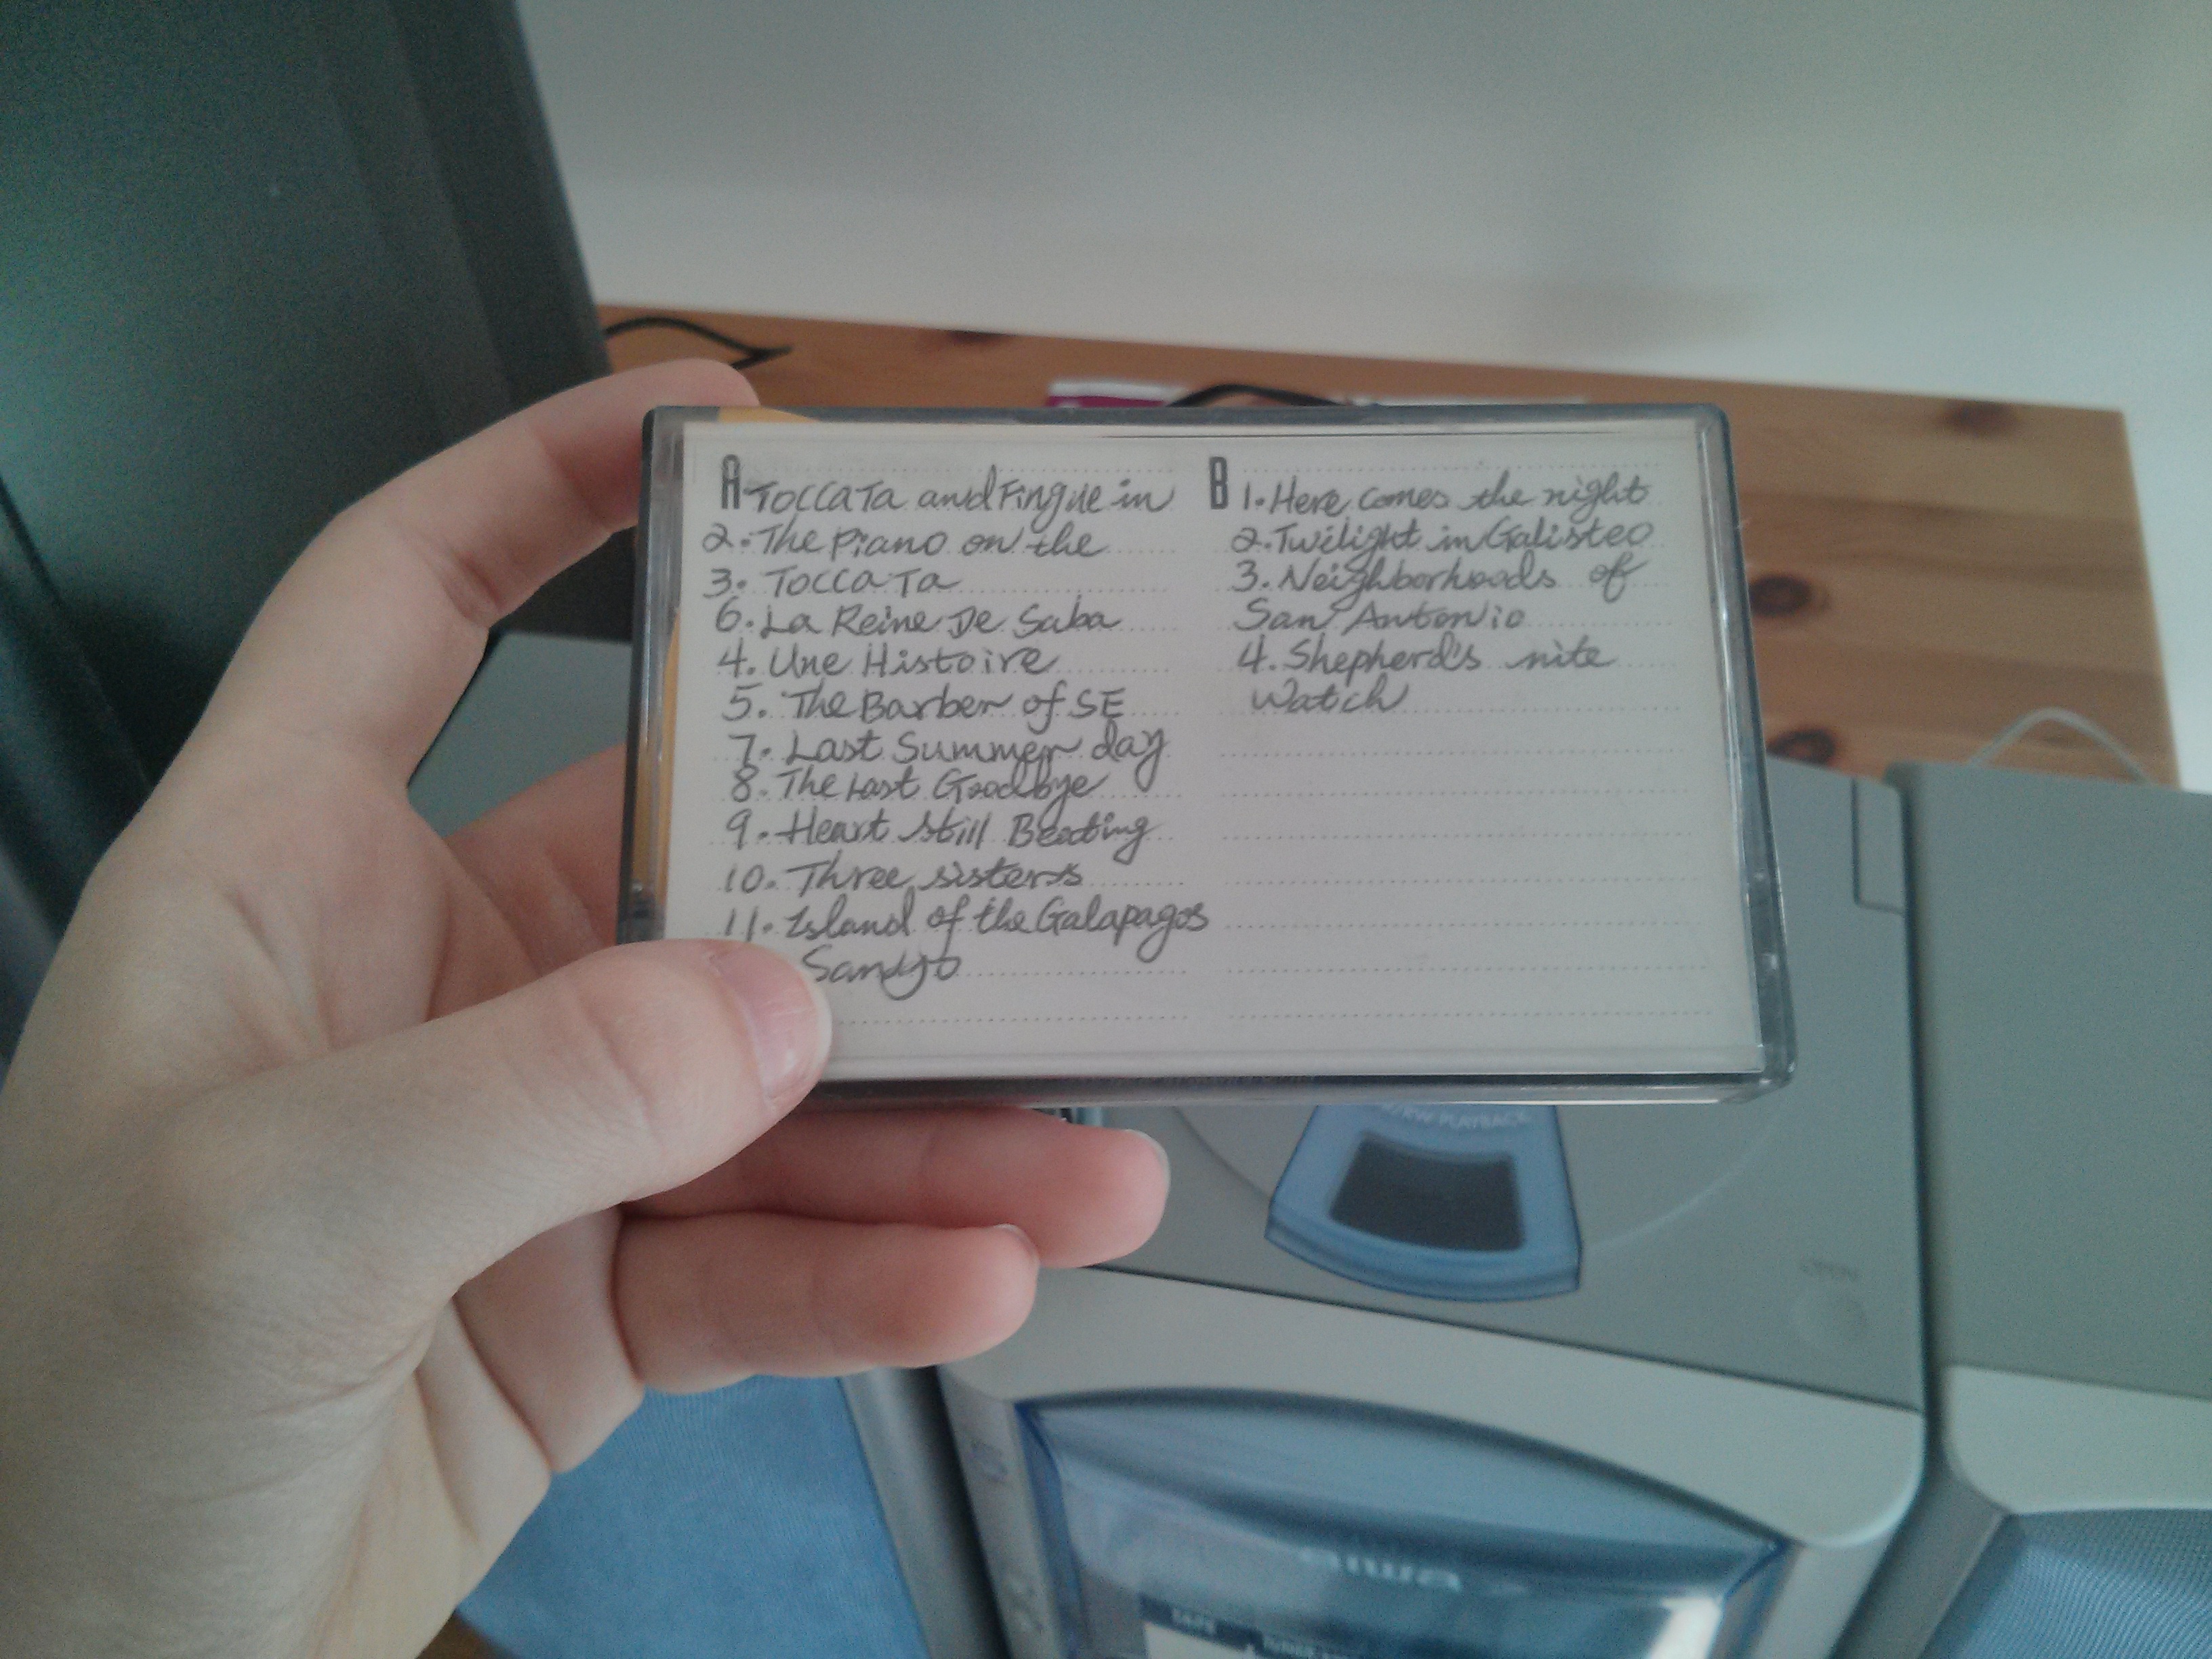 A Toccata and Fingue in
2. The piano on the
3. Toccata
6. La Reine De Saba
4. Une Histoire
5. The Barber of SE
7. Last Summer day
8. The Last Goodbye
9. Heart still Beating
10. Three sisters
11. Island of the Galapagos
B 1. Here comes the night
2. Twilight in Galisteo
3. Neighborhoods of
San Antonio
4. Shepherd's nite
Watch
PLAYBACK
OPEN
aiwa